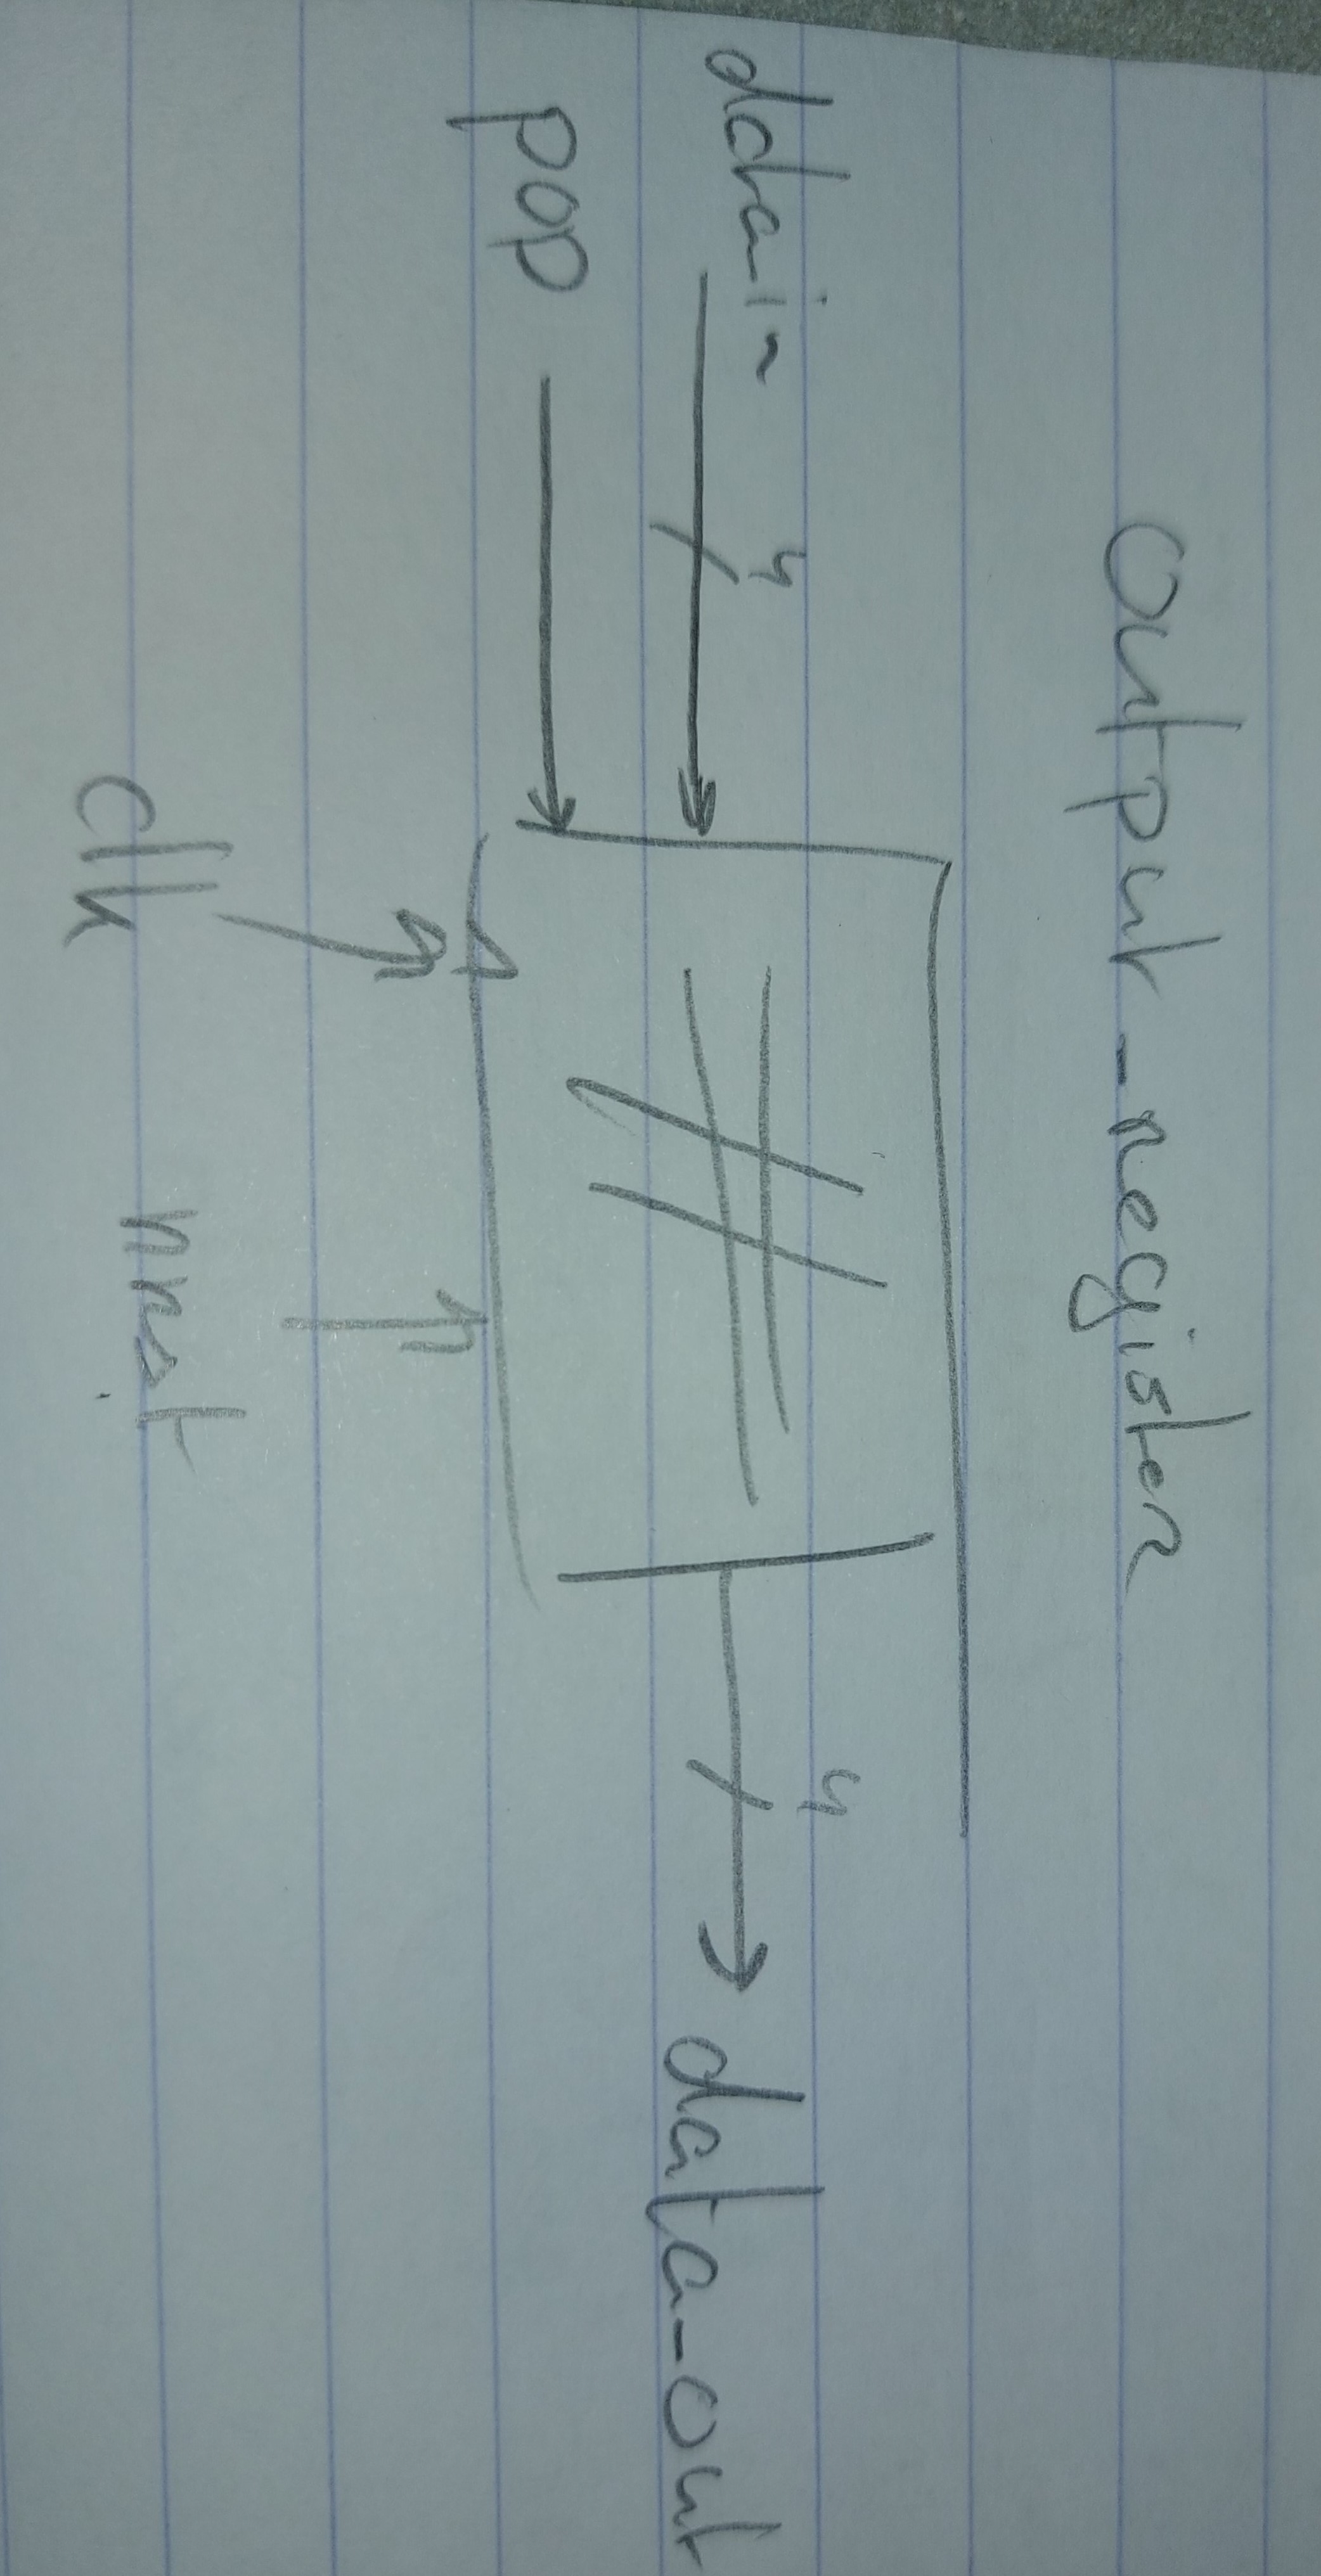 output_register
4
data_in 4
data_out
pop
clk nrst